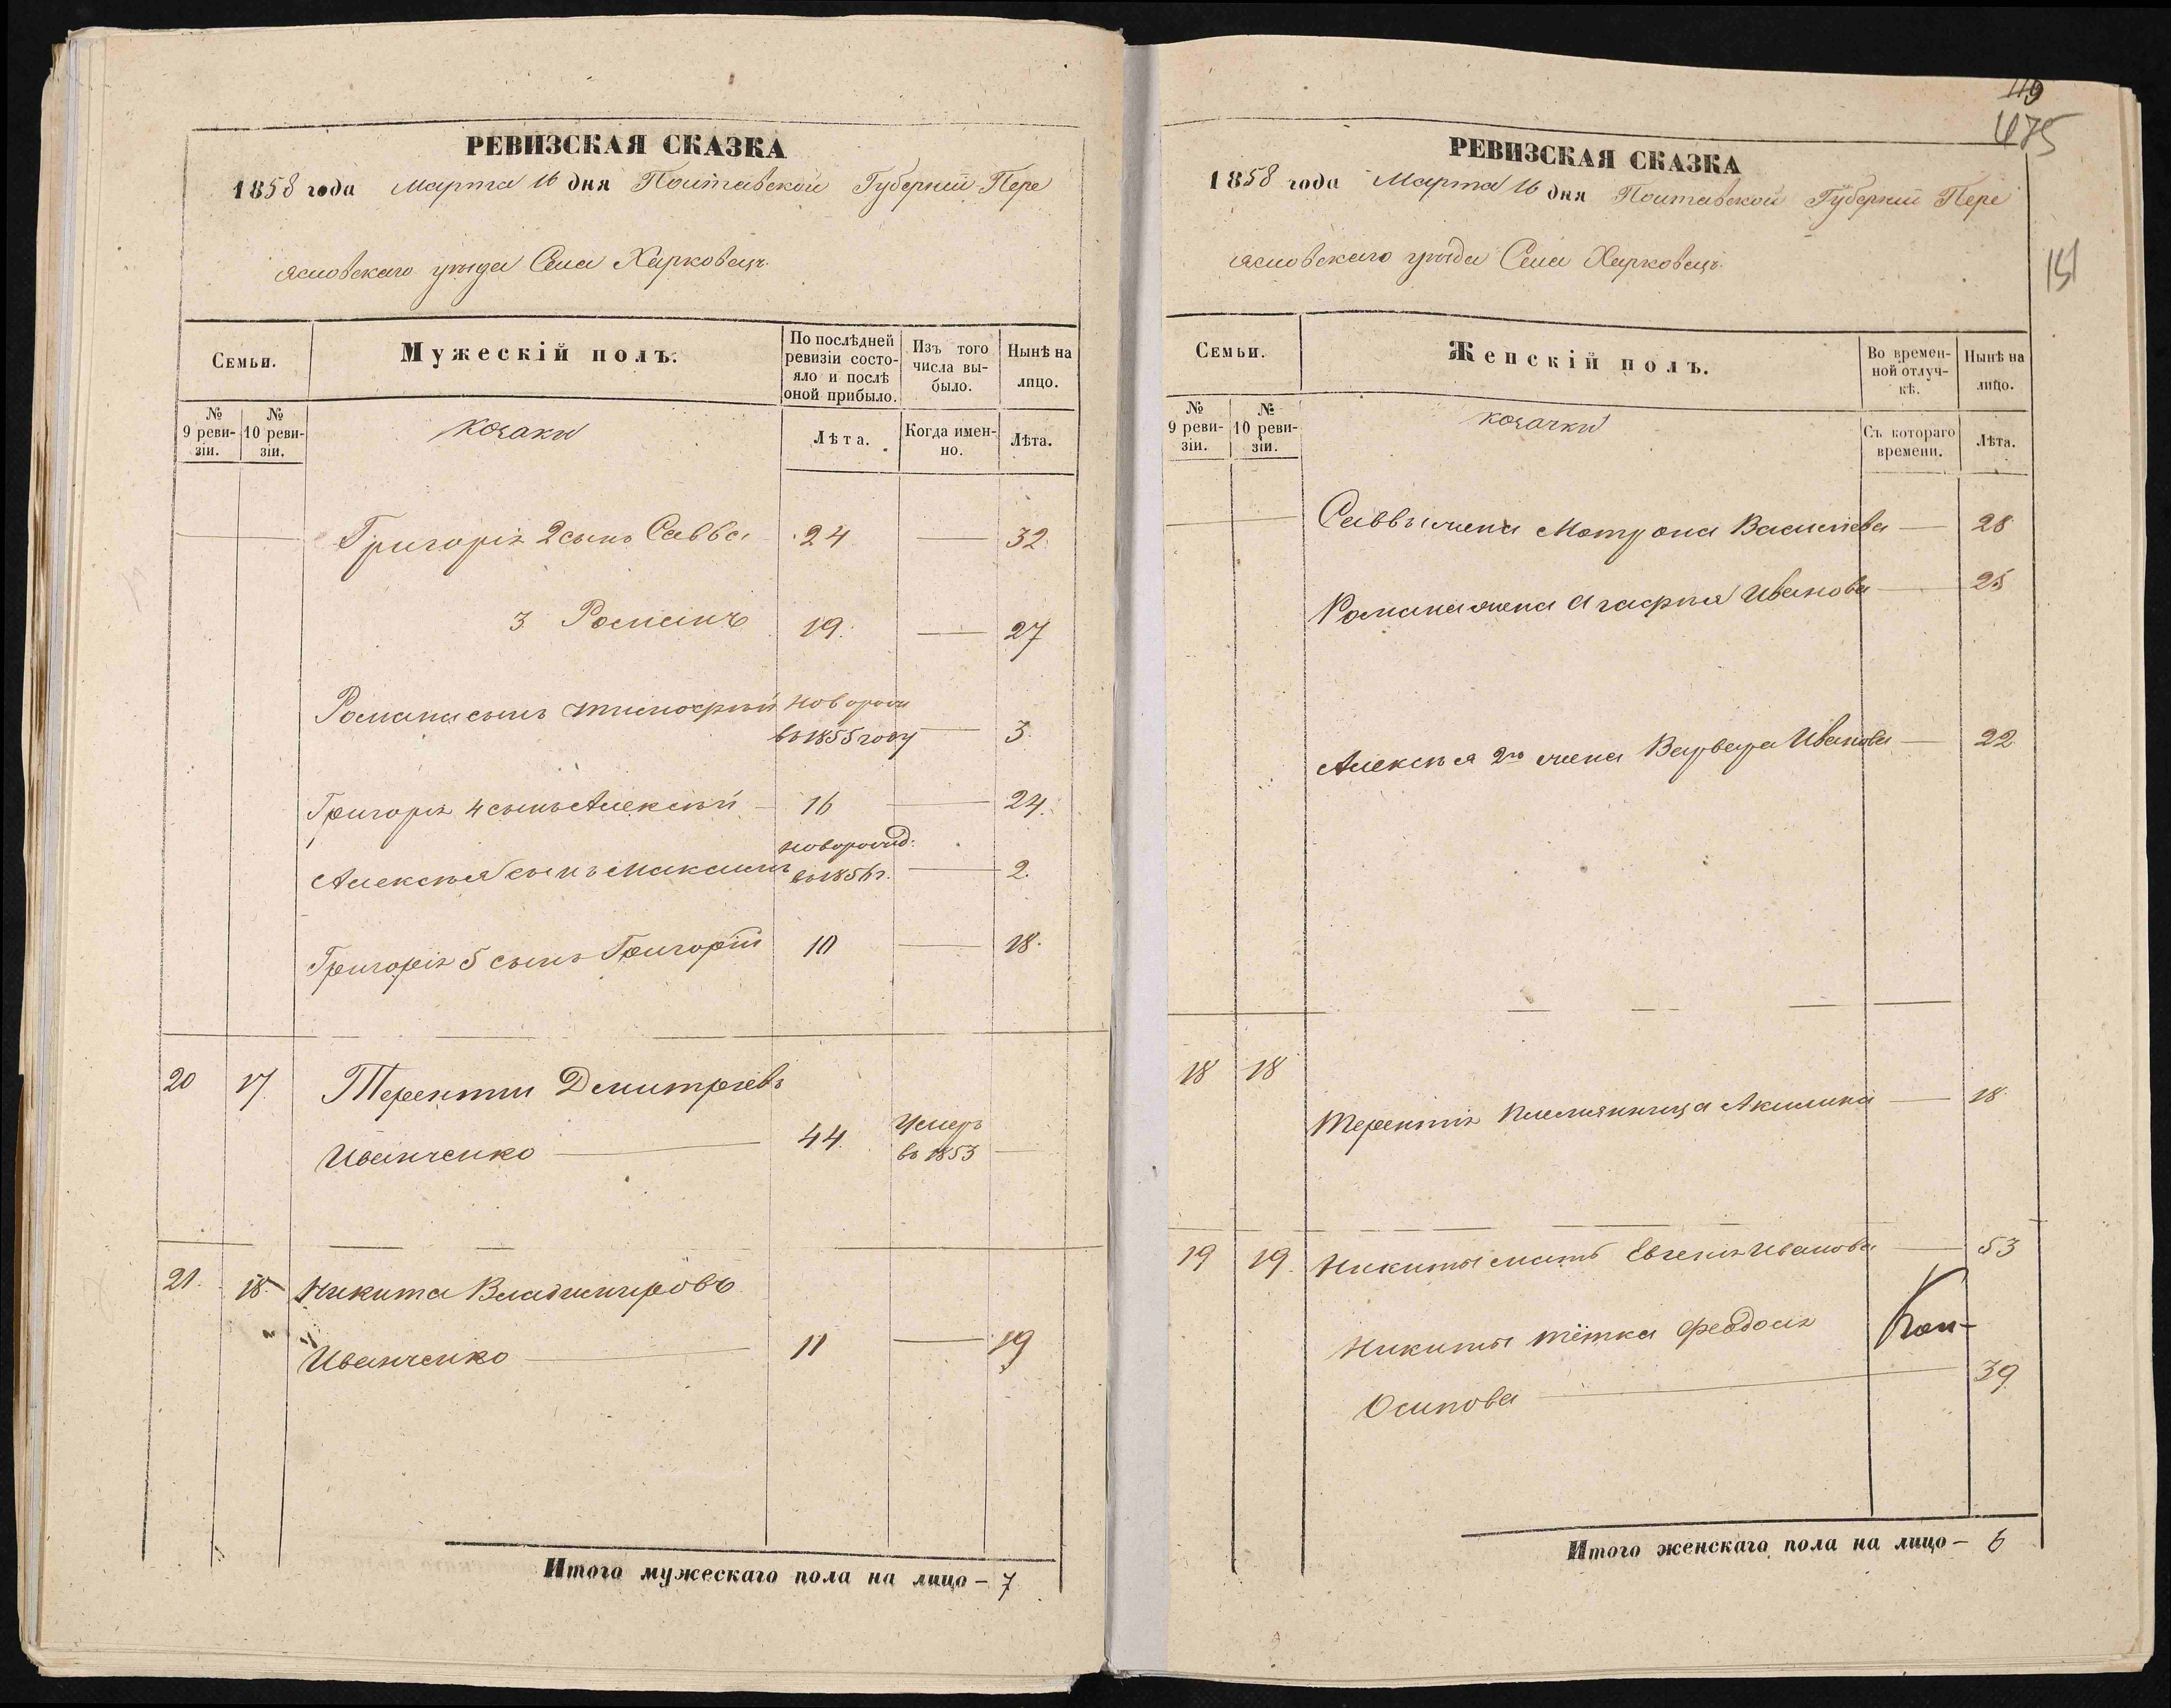 РЕВИЗСКАЯ СКАЗКА
1858 года Марта 16 дня Полтавской Губерніи Пере
ясловскаго уезда Села Харковецъ.
Семьи.
Мужескій полъ.
По послѣдней ревизіи состо-
яло и послѣ оной прибыло.
Изъ того числа вы-
было.
Нынѣ на лицо.
№ 9 реви-
зіи.
№ 10 реви-
зіи.
козаки
Лѣта.
Когда имен-
но.
Лѣта.
Григорія 2 сынъ Савва 24 — 32
3 Романъ 19. — 27
Романа сынъ Тимофей новорож
въ 1855 году — 3
Григорія 4 сынъ Алексѣй — 16 — 24.
Алексѣя сынъ Максимъ новорожд:
въ 1856 г. — 2.
Григорія 5 сынъ Григорій 10 — 18.
20 17 Терентій Дмитріевъ
Иванченко — 44. Умеръ
въ 1853 —
21. 18. Никита Владимировъ
Иванченко — 11 — 19
Итого мужескаго пола на лицо – 7
119
475
151
РЕВИЗСКАЯ СКАЗКА
1858 года Марта 16 дня Полтавской Губерніи Пере
ясловскаго уезда Села Харковецъ.
Семьи.
Женскій полъ.
Во времен-
ной отлуч-
кѣ.
Нынѣ на лицо.
№ 9 реви-
зіи.
№ 10 реви-
зіи.
козачки
Съ котораго времени.
Лѣта.
Саввы жена Мотрона Василіева — 28
Романа жена Агафия Иванова — 25
Алексѣя 2го жена Варвара Иванова — 22
18 18
Терентія племянница Акилина — 18.
19 19. Никиты мать Евгенія Иванова — 53
Никиты тётка Феодосія
Осипова — 39
Итого женскаго пола на лицо – 6